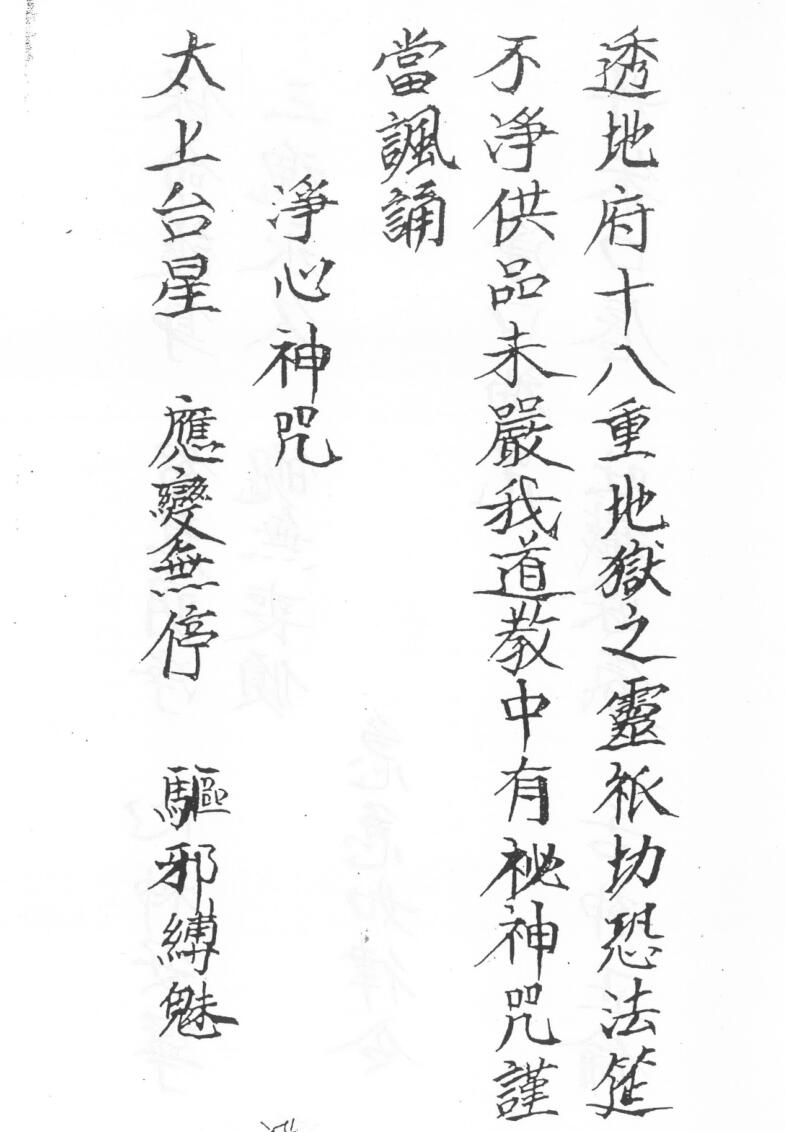 透地府十八重地獄之靈祇切恐法筵
不淨供品未嚴我道教中有祕神咒謹
當諷誦
淨心神咒
太上台星　應變無停　驅邪縛魅